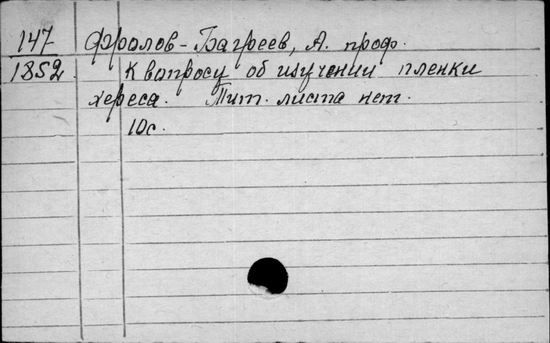 147 Фролов-Багреев, А. проф.
1852 К вопросу об изучении пленки
хереса. Тит. листа нет.
10с.